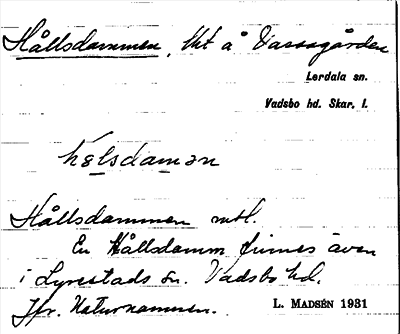 Hållsdammen, lht å Vassagården
Lerdala sn.
Vadsbo hd. Skar. l.
hålsdamən
Hållsdammen mtl.
En Hållsdamm finnes även
i Lyrestads sn. Vadsbo hd.
Jfr. Naturnamnen.
L. MADSÉN 1931